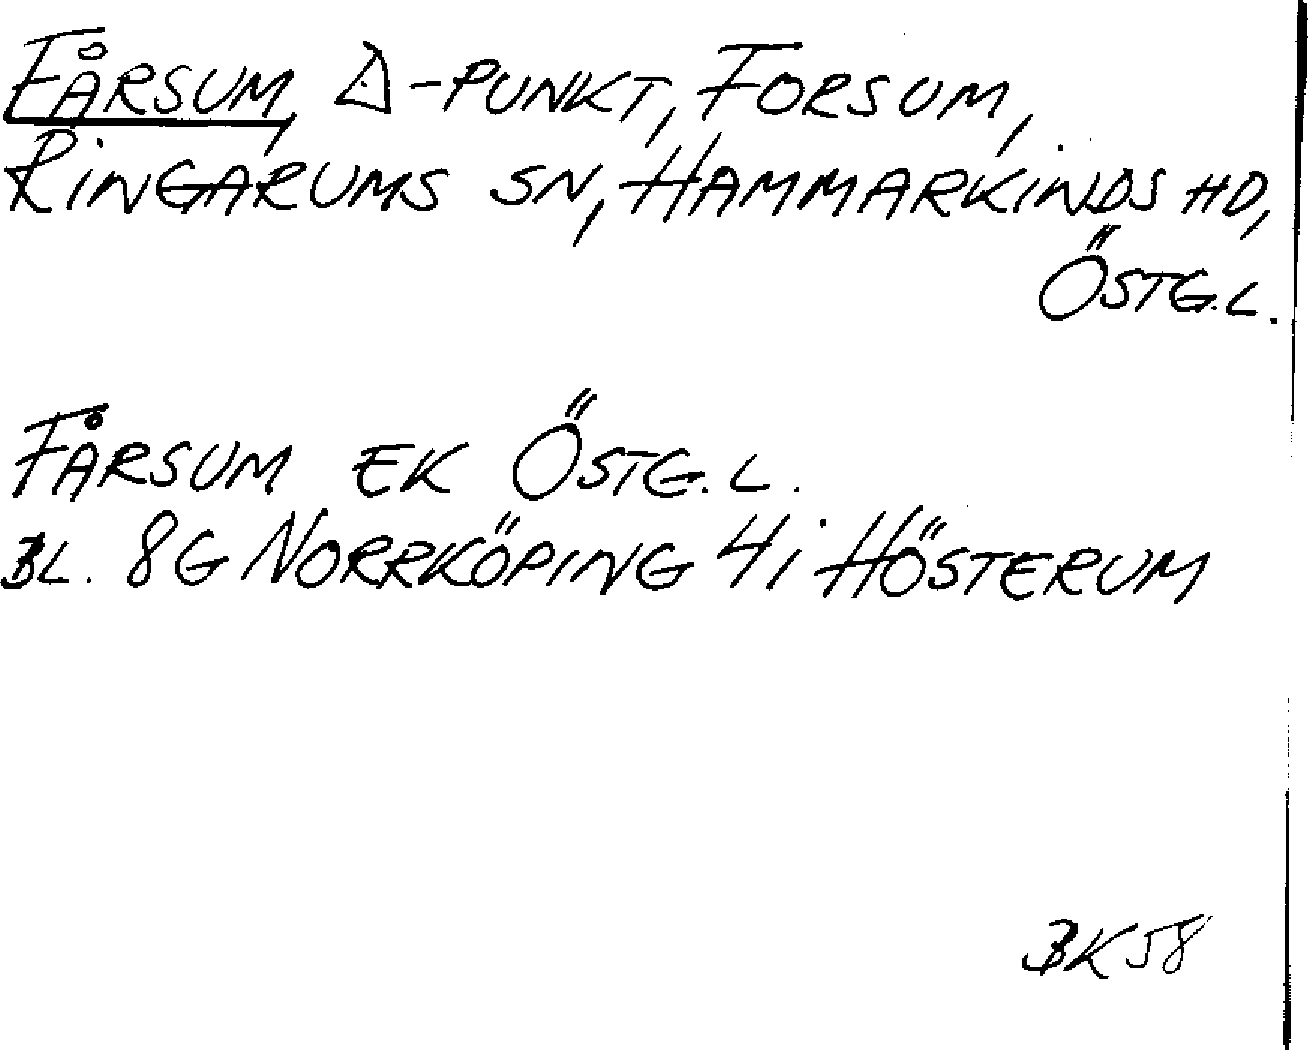 FÅRSUM, △-PUNKT, FORSUM,
RINGARUMS SN, HAMMARKINDS HD,
ÖSTG.L.
FÅRSUM EK ÖSTG.L.
BL. 8G NORRKÖPING 4i HÖSTERUM
BK58